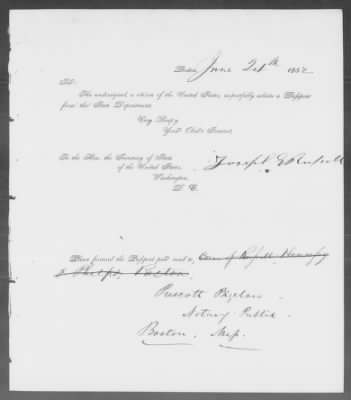 Boston, June 26th 1852
Sir:
The undersigned, a citizen of the United States, respectfully solicits a Passport
from the State Department.
Very Resp'y
Your Obd't Servant
Joseph G Russell
To the Hon. the Secretary of State
of the United States,
Washington,
D. C.
Please forward the Passport per mail to, Care of
& Phelps, Boston
Prescott Bigelow
Notary Public
Boston, Mass.